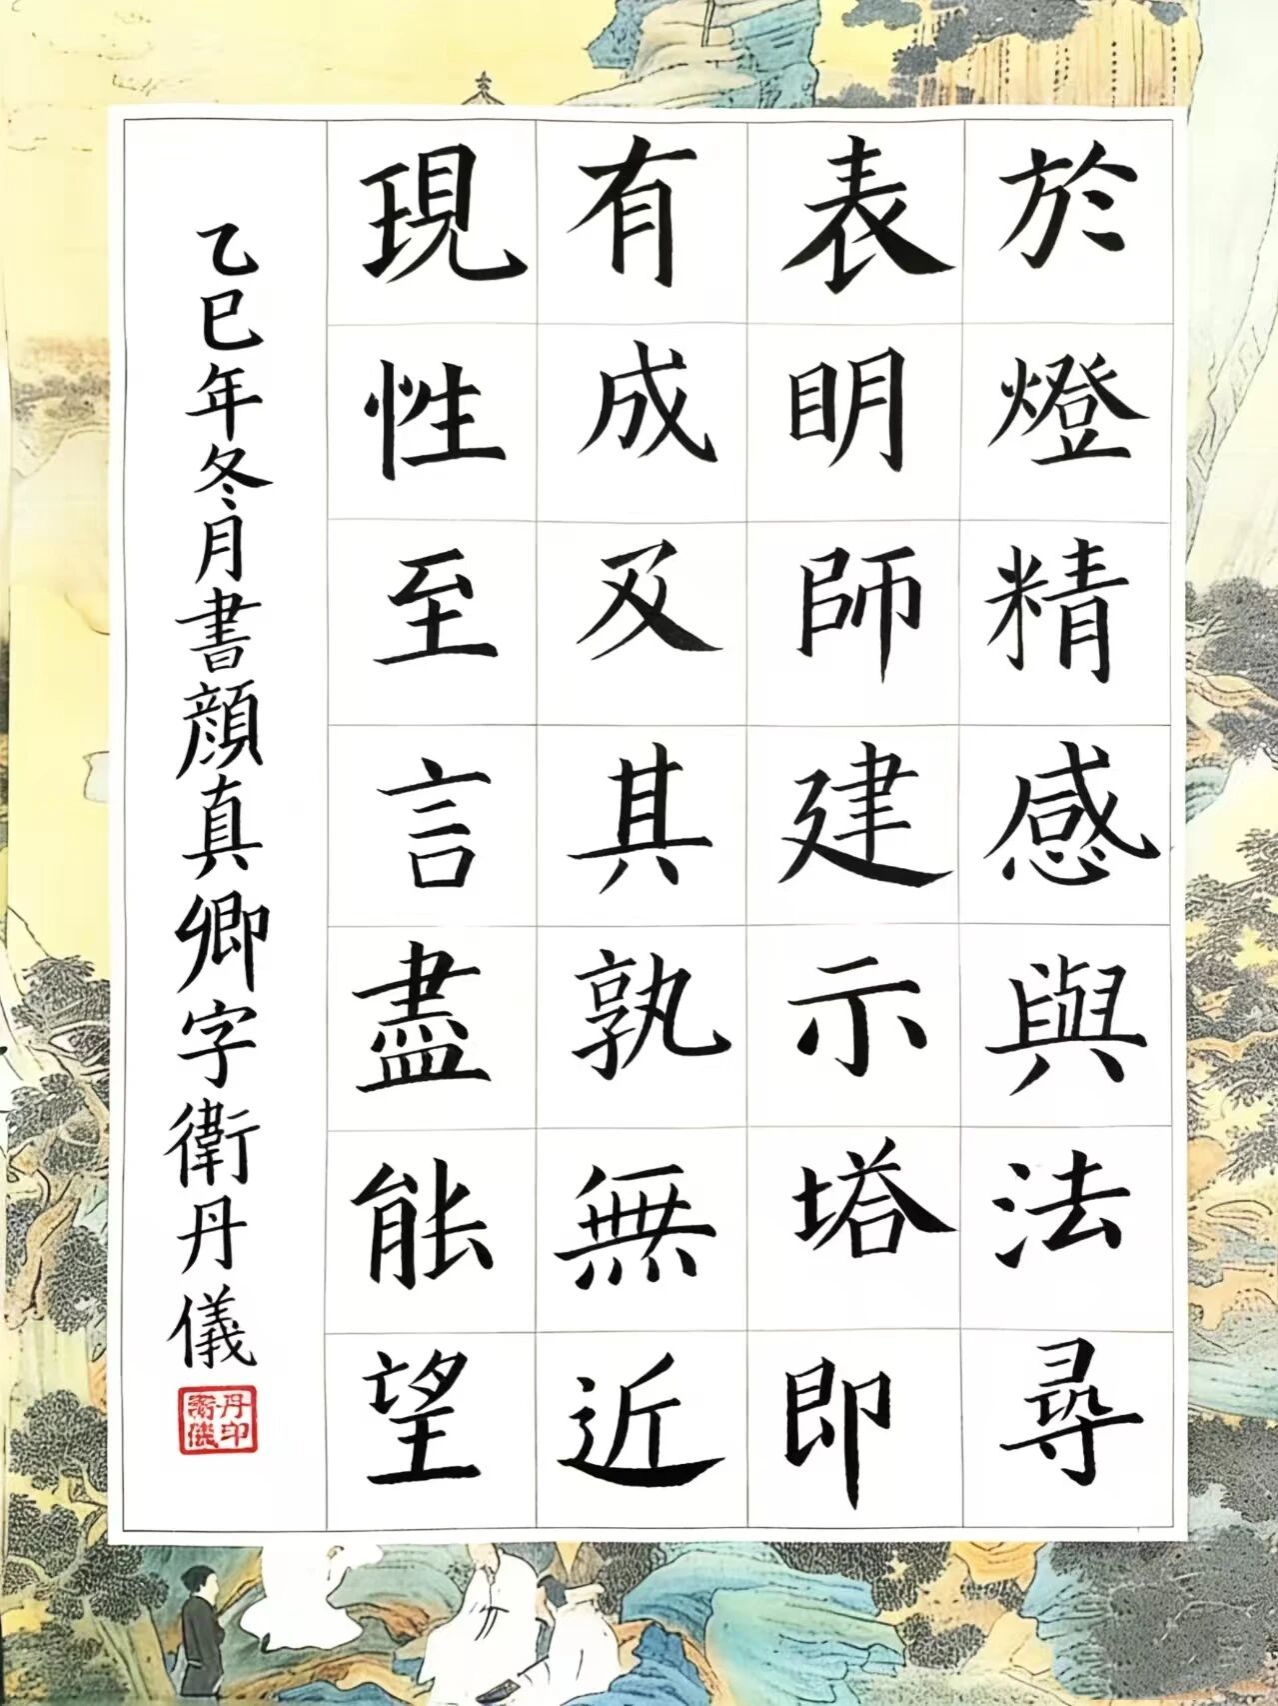 於燈精感與法尋
表明師建示塔即
有成及其孰無近
現性至言盡能望
乙巳年冬月書顏真卿字衛丹儀
丹印
衛儀